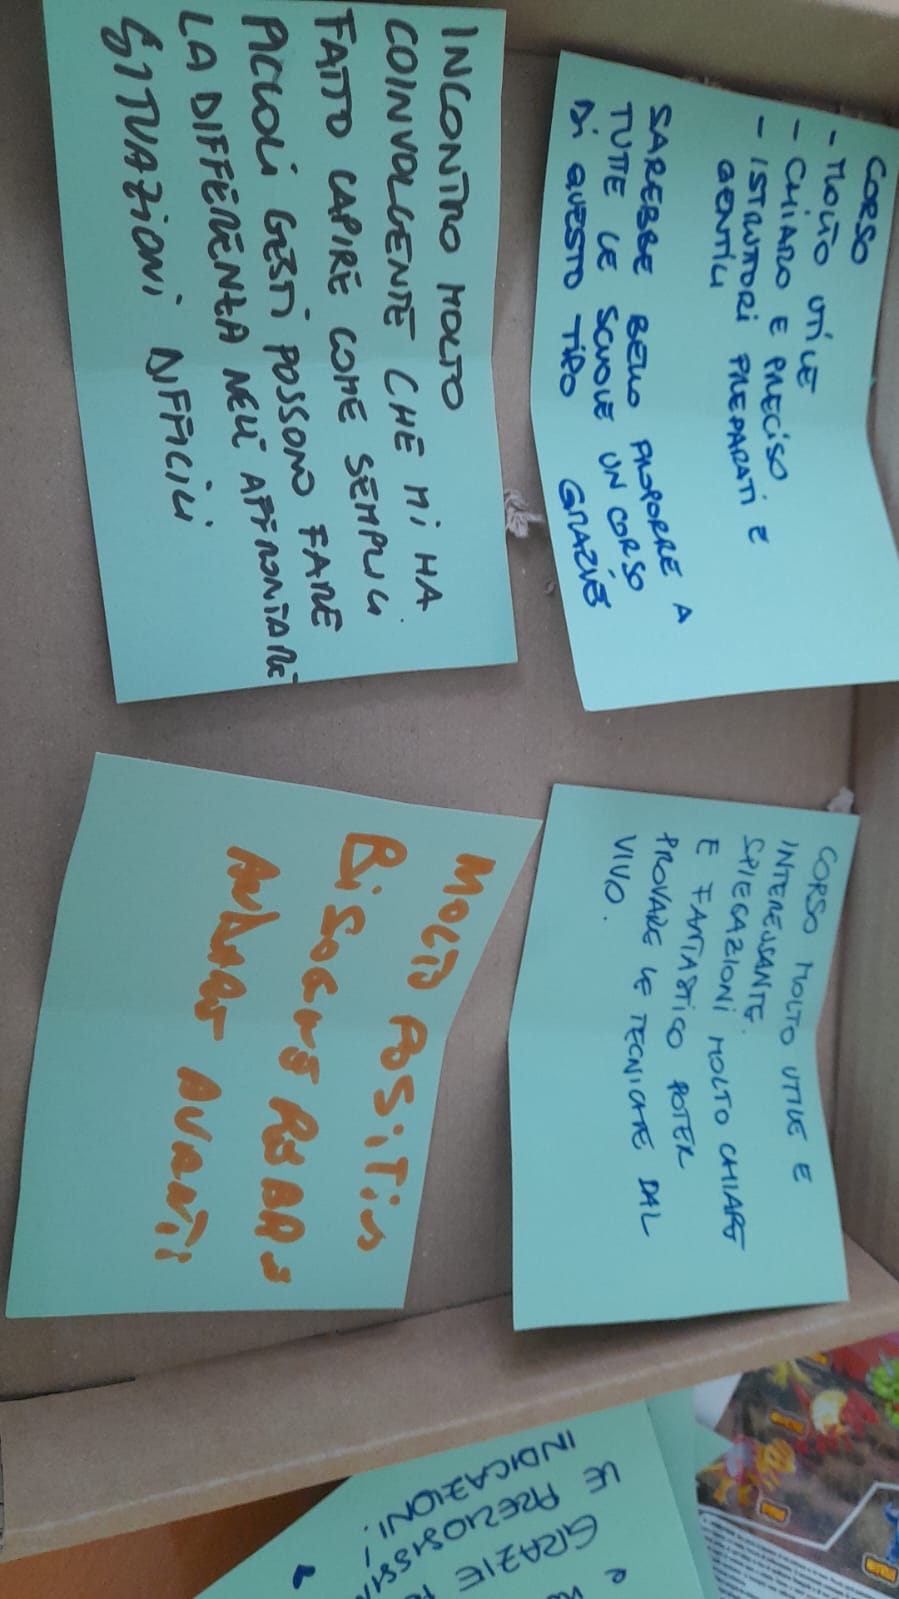 CORSO
- MOLTO UTILE
- CHIARO E PRECISO
- ISTRUTTORI PREPARATI E
GENTILI
SAREBBE BELLO PROPORRE A
TUTTE LE SCUOLE UN CORSO
DI QUESTO TIPO GRAZIE
INCONTRO MOLTO
COINVOLGENTE CHE MI HA
FATTO CAPIRE COME SEMPLICI
PICCOLI GESTI POSSONO FARE
LA DIFFERENZA NELL'AFFRONTARE
SITUAZIONI DIFFICILI
CORSO MOLTO UTILE E
INTERESSANTE.
SPIEGAZIONI MOLTO CHIARE
E FANTASTICO POTER
PROVARE LE TECNICHE DAL
VIVO.
MOLTO POSITIVO
BISOGNEREBBE
ANDARE AVANTI!
GRAZIE
LE PREZIOSISSIM
INDICAZIONI!